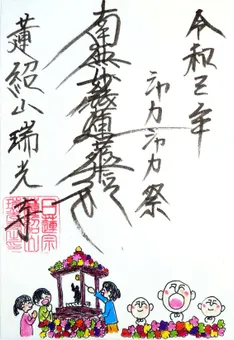 令和三年
シャカシャカ祭
南無妙法蓮華経
蓮紹山瑞光寺
日蓮宗